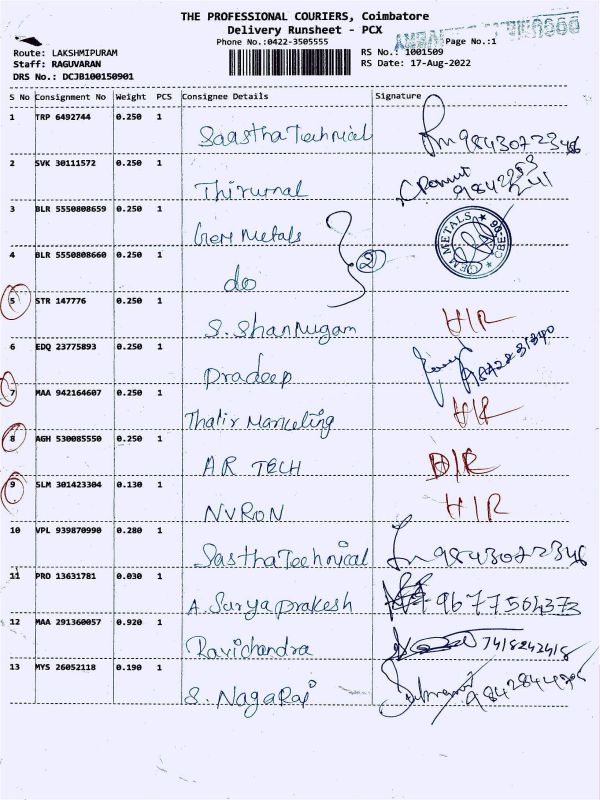 THE PROFESSIONAL COURIERS, Coimbatore
Delivery Runsheet - PCX
Phone No.:0422-3505555
Page No.:1
Route: LAKSHMIPURAM
RS No.: 1001509
Staff: RAGUVARAN
RS Date: 17-Aug-2022
DRS No.: DCJB100150901
S No Consignment No Weight PCS Consignee Details Signature
1 TRP 6492744 0.250 1 Saastha Technical 9843072346
2 SVK 30111572 0.250 1 Thirumal 9842253241
3 BLR 5550808659 0.250 1 Gem Metals GEM METALS ★ CBE-06 ★
4 BLR 5550808660 0.250 1 do 2
5 STR 147776 0.250 1 S. Shanmugam H/R
6 EDQ 23775893 0.250 1 Pradeep
7 MAA 942164607 0.250 1 Thalir Marketing H/R
8 AGH 530085550 0.250 1 AR TECH D/R
9 SLM 301423304 0.130 1 NVRON H/R
10 VPL 939870990 0.280 1 Sastha Technical 9843072346
11 PRO 13631781 0.030 1 A. Surya prakesh 9677564373
12 MAA 291360057 0.920 1 Ravichandra 7418242418
13 MYS 26052118 0.190 1 S. Nagaraj